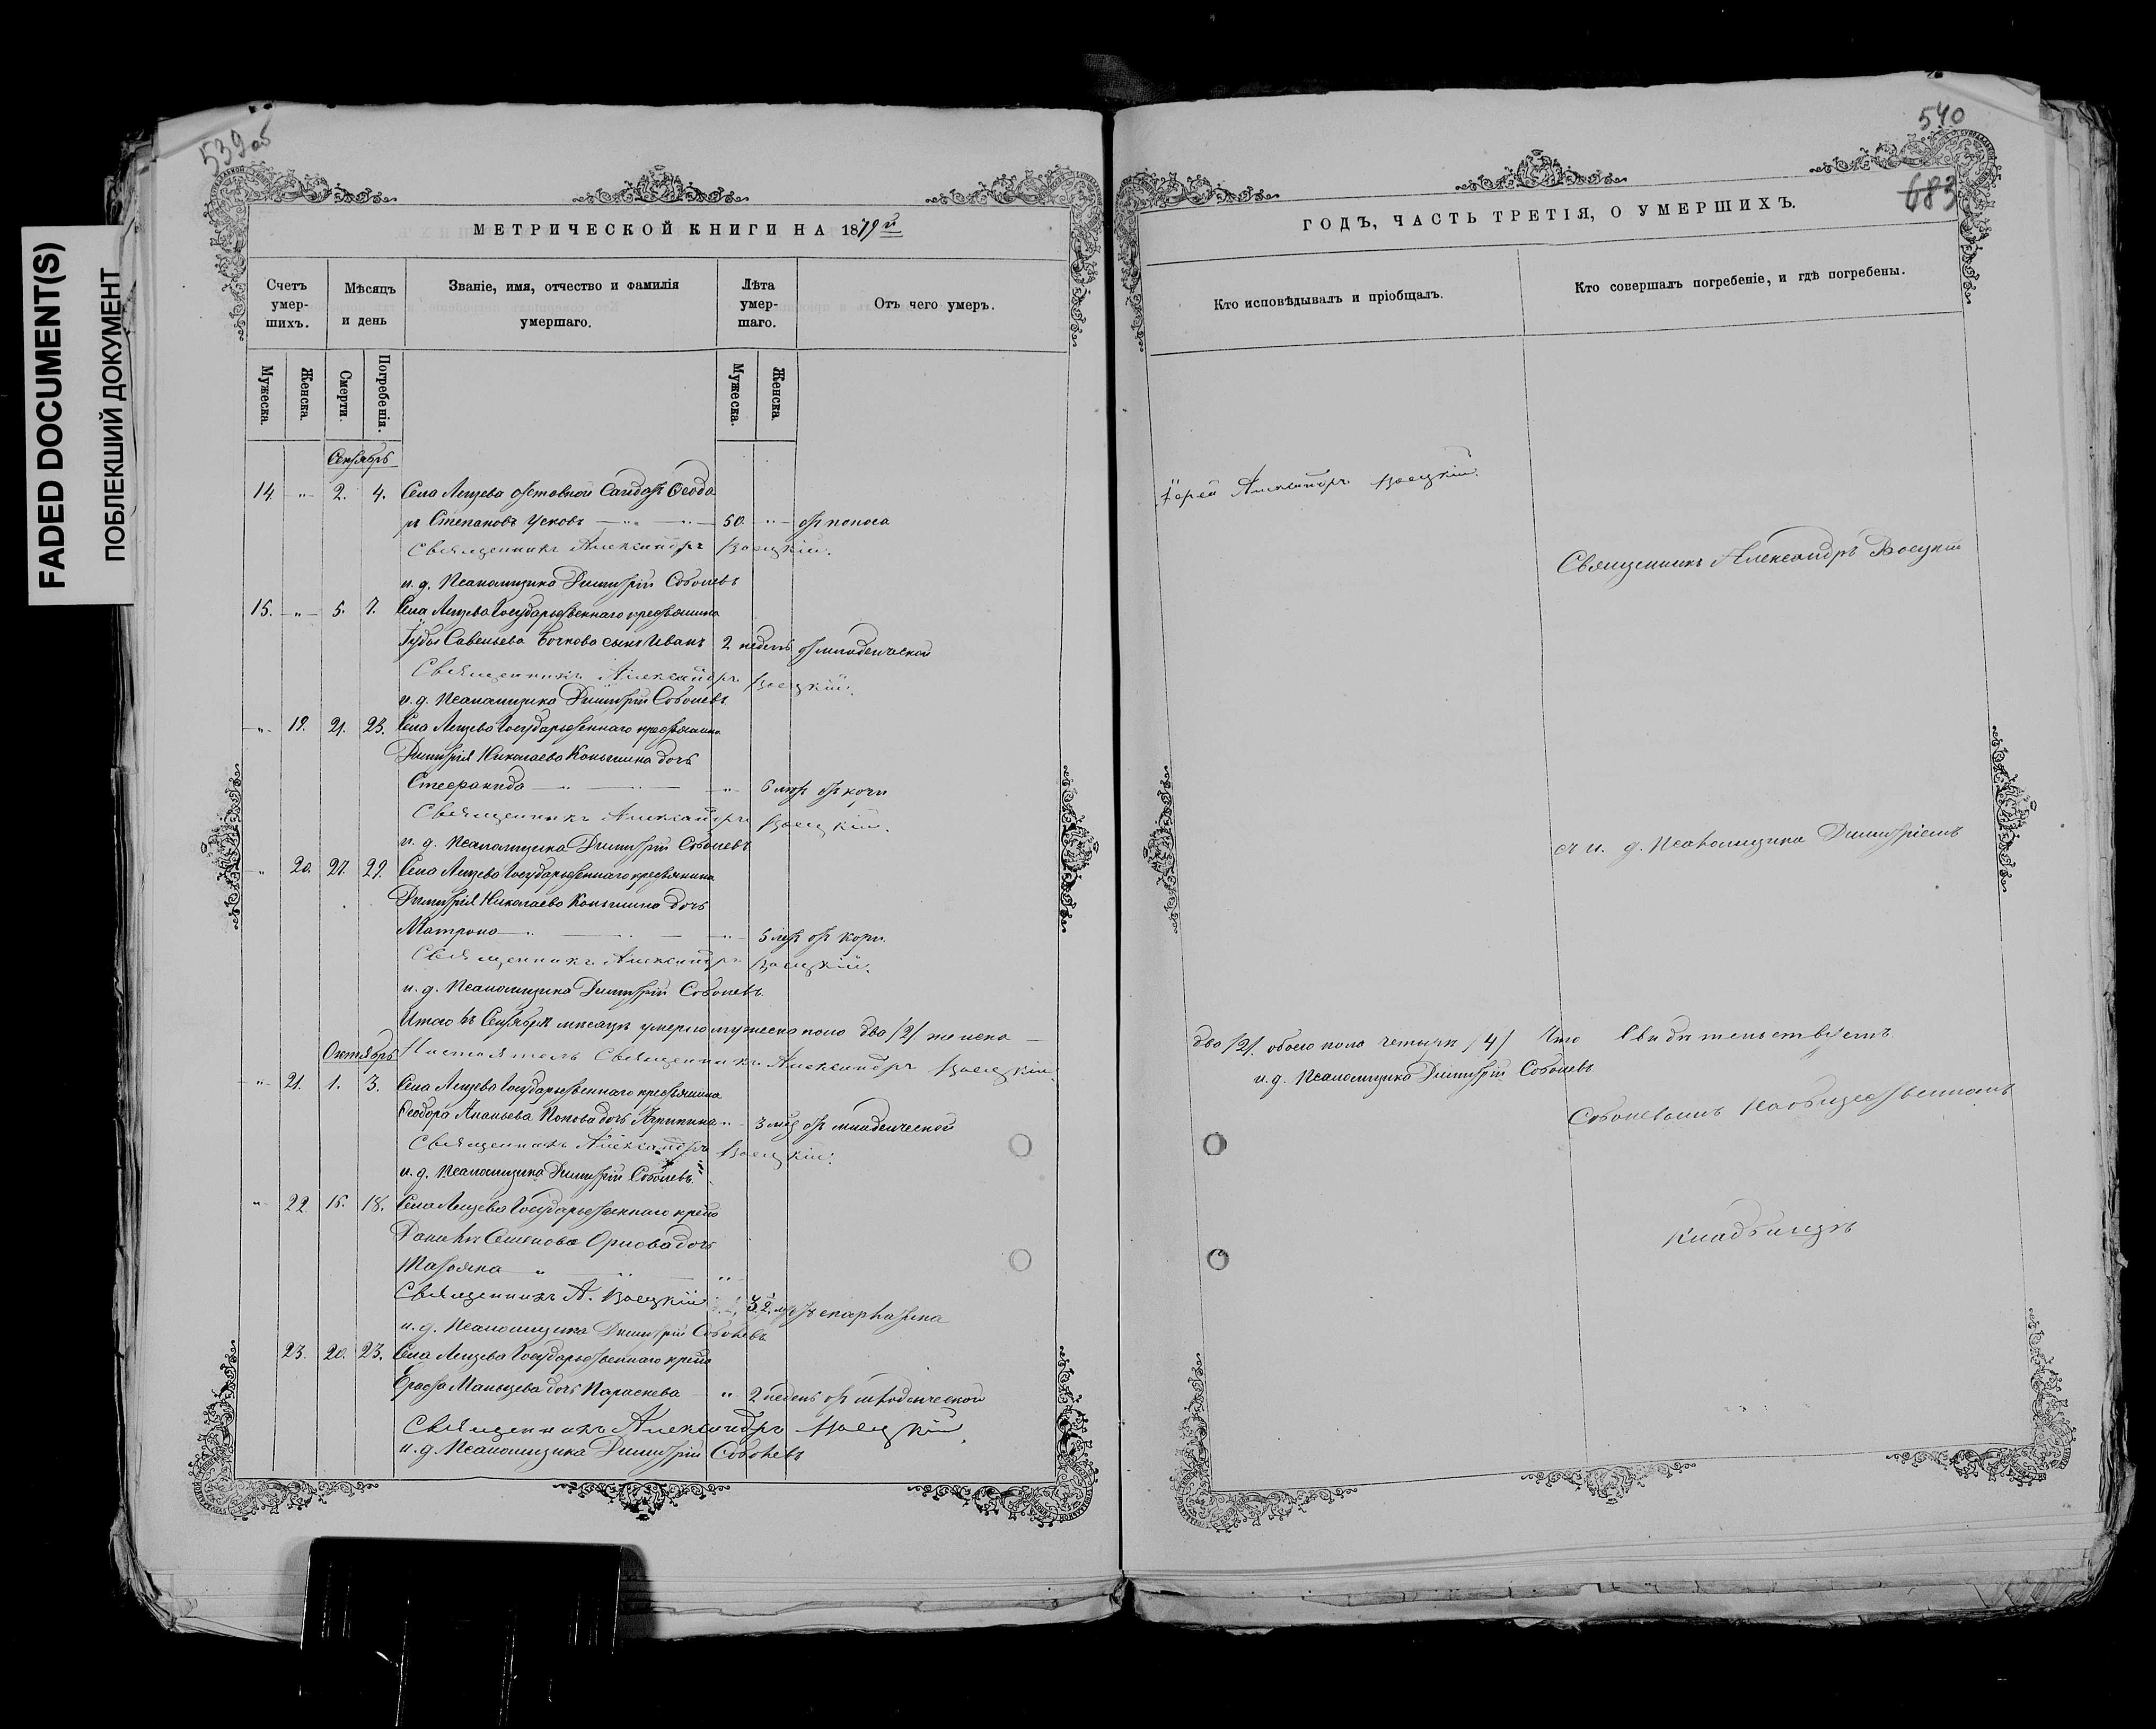 FADED DOCUMENT(S)
ПОБЛЕКШИЙ ДОКУМЕНТ
539об
МЕТРИЧЕСКОЙ КНИГИ НА 1879й
Счетъ умер-шихъ.
Мѣсяцъ и день
Званіе, имя, отчество и фамилія умершаго.
Лѣта умер-шаго.
Отъ чего умеръ.
Мужеска.
Женска
Смерти.
Погребенія.
Мужеска.
Женска
Сентябрь
14 " 2. 4. Села отставной Солдатъ Ѳеодо
ръ Степановъ Усковъ 50 " отъ поноса
Священникъ Александръ
и. д. Псаломщика Димитрій Соболевъ
15. " 5. 7. Села Государственнаго крестьянина
Савельева Бочкова сынъ Иванъ 2 недель отъ младенческой
Священникъ Александръ
и. д. Псаломщика Димитрій Соболевъ
" 19. 21. 23. Села Государственнаго крестьянина
Димитрія Николаева дочь
Стефанида " 6 лѣтъ отъ кори
Священникъ Александръ
и. д. Псаломщика Димитрій Соболевъ
" 20. 27. 29. Села Государственнаго крестьянина
Димитрія Николаева дочь
Матрона " 3 лѣтъ отъ кори
Священникъ Александръ
и. д. Псаломщика Димитрій Соболевъ
Итого въ Сентябрѣ мѣсяцѣ умерло мужеска пола два /2/ женска
Октябрь Настоятель Священникъ Александръ
" 21. 1. 3. Села Государственнаго крестьянина
Ѳеодора Ананьева Попова дочь Агрипина " 3 мѣс отъ младенческой
Священникъ Александръ
и. д. Псаломщика Димитрій Соболевъ
" 22 15. 18. Села Государственнаго крест
Семенова Орлова дочь
Татьяна "
Священникъ А. отъ скарлатина
и. д. Псаломщика Димитрій Соболевъ
23. 20. 23. Села Государственнаго крест
Мальцева дочь Параскева " 2 недель отъ младенческой
Священникъ Александръ
и. д. Псаломщика Димитрій Соболевъ
540
683
ГОДЪ, ЧАСТЬ ТРЕТІЯ, О УМЕРШИХЪ.
Кто исповѣдывалъ и пріобщалъ.
Кто совершалъ погребеніе, и гдѣ погребены.
Іерей Александръ
Священникъ Александръ
съ и. д. Псаломщика Димитріемъ
два /2/ обоего пола четыри /4/ Что Свидѣтельствуемъ
и. д. Псаломщика Димитрій Соболевъ
Соболевымъ На общественномъ
Кладбищѣ